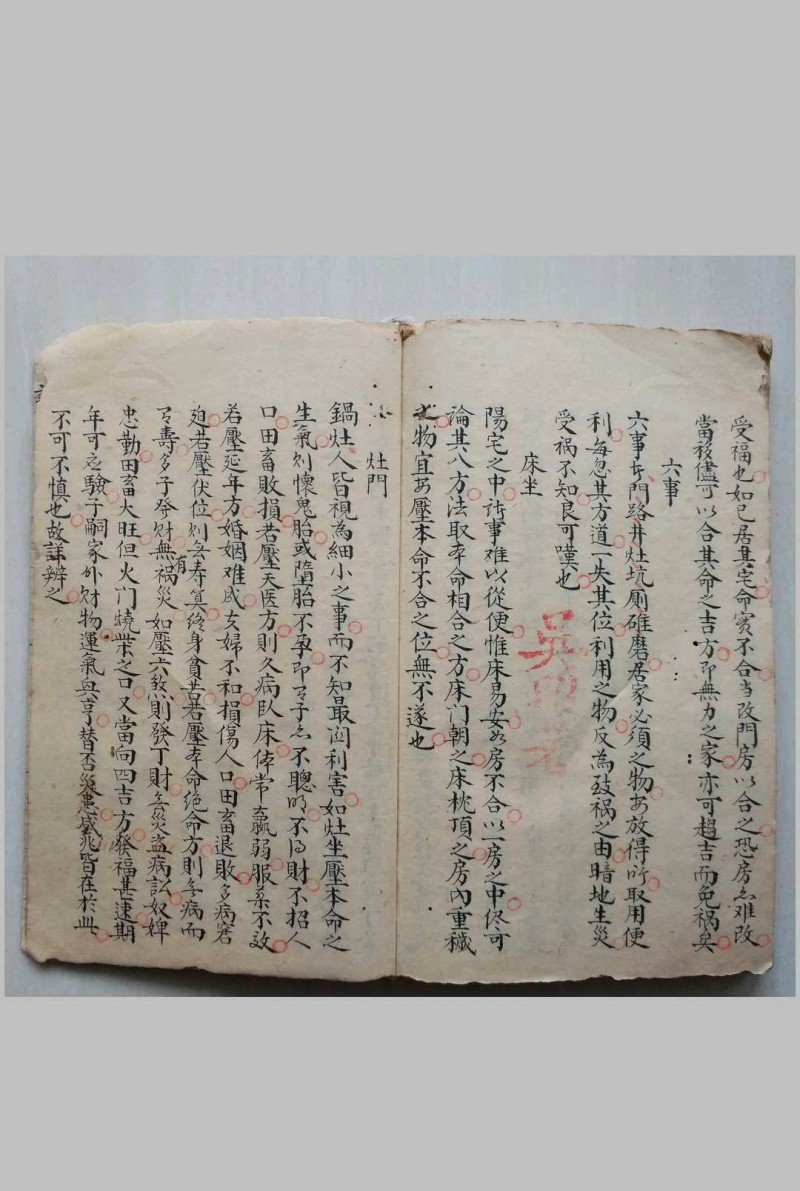 受福也如已居其宅命實不合当改門房以合之恐房亦难改
當移儘可以合其命之吉方即無力之家亦可趨吉而免禍矣
六事
六事者門路井灶坑厠碓磨居家必須之物安放得所取用便
利每忽其方道一失其位利用之物反為致禍之由暗地生災
受禍不知良可嘆也
床坐
陽宅之中諸事難以從便惟床易安如房不合以一房之中侭可
論其八方法取本命相合之方床门朝之床枕頂之房內重穢
之物宜安壓本命不合之位無不遂也
灶門
鍋灶人皆視為細小之事而不知最関利害如灶坐壓本命之
生氣則懷鬼胎或墮胎不孕即有子亦不聰明不得財不招人
口田畜敗損若壓天医方則久病臥床体常羸弱服药不效
若壓延年方婚姻难成夫婦不和損傷人口田畜退敗多病窘
迫若壓伏位則無寿算終身貧苦若壓本命絕命方則無病而
有壽多子發財無禍災如壓六煞則發丁財無災盜病訟奴婢
有
忠勤田畜大旺但火门燒柴之口又當向四吉方發福甚速期
年可立驗子嗣家外財物運氣與亨替否災患盛兆皆在於此
不可不慎也故詳辨之